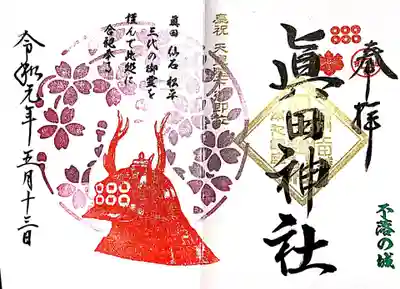 奉拝
眞田神社
不落の城
眞田 仙石 松平
三代の御霊を
謹んで此処に
合祀奉る
令和元年五月十三日